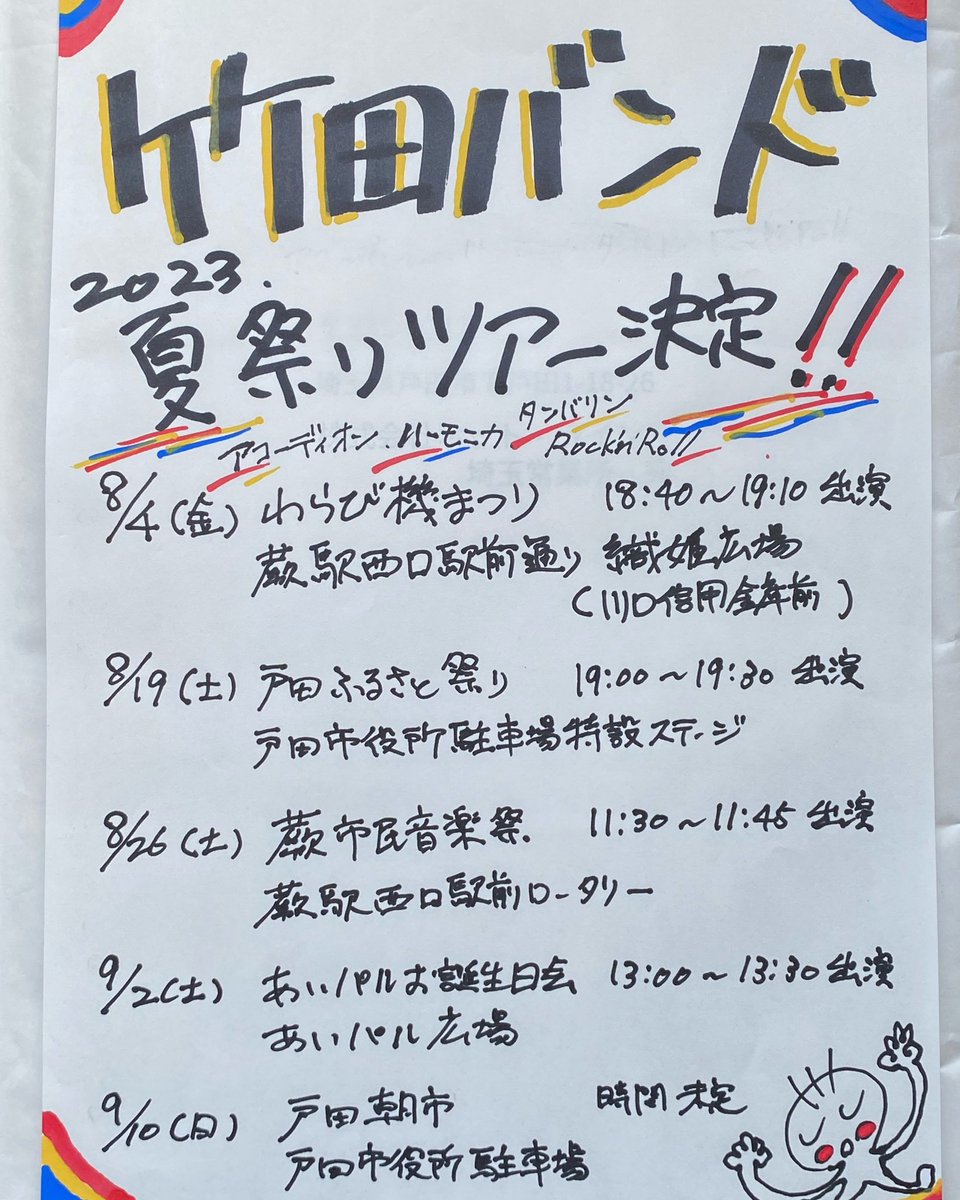 竹田バンド
2023.
夏祭りツアー決定!!
アコーディオン.ハーモニカ タンバリン Rock'n'Roll
8/4(金) わらび機まつり 18:40〜19:10 出演
蕨駅西口駅前通り 織姫広場
(川口信用金庫前)
8/19(土) 戸田ふるさと祭り 19:00〜19:30 出演
戸田市役所駐車場特設ステージ
8/26(土) 蕨市民音楽祭 11:30〜11:45 出演
蕨駅西口駅前ロータリー
9/2(土) あいパルお誕生日会 13:00〜13:30 出演
あいパル広場
9/10(日) 戸田朝市 時間未定
戸田市役所駐車場